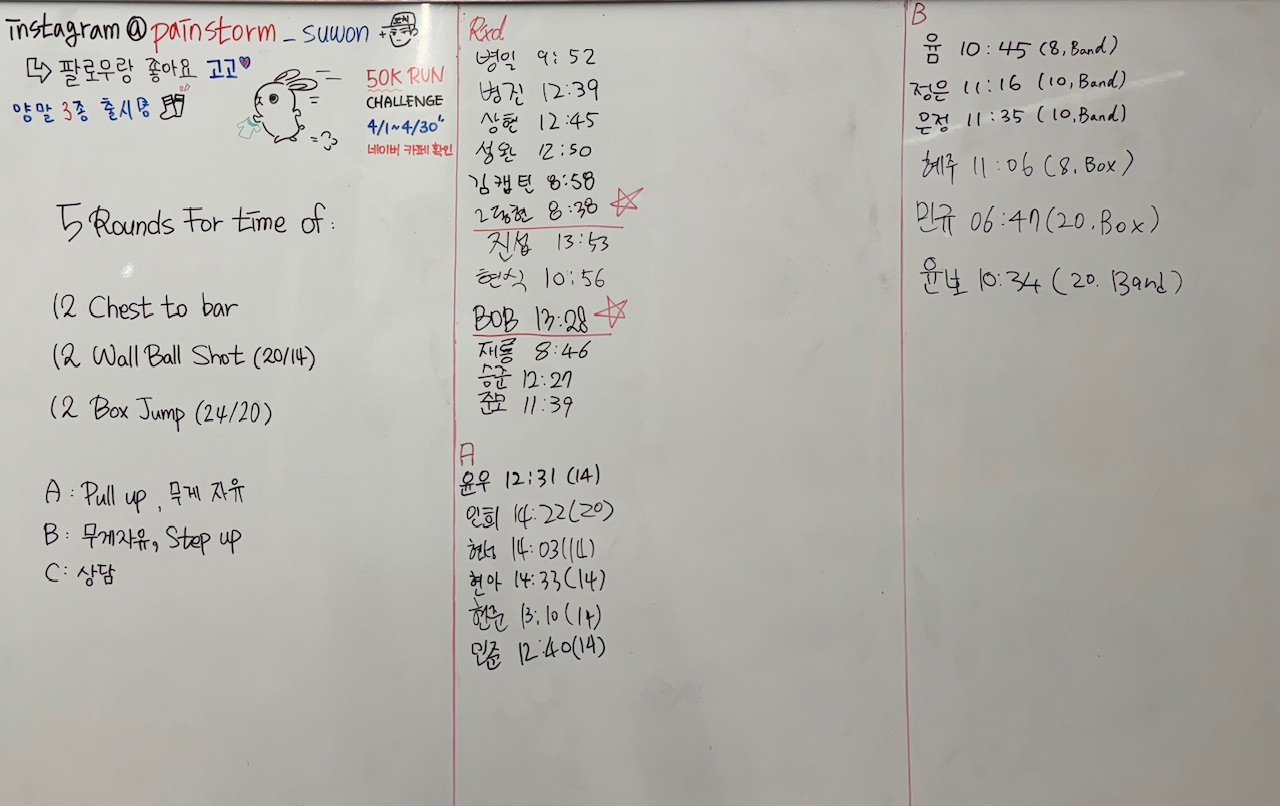 instagram @ painstorm _ suwon
팔로우랑 좋아요 고고
양말 3종 출시중
50K RUN
CHALLENGE
4/1~4/30"
네이버 카페 확인
5 Rounds For time of:
12 Chest to bar
12 Wall Ball Shot (20/14)
12 Box Jump (24/20)
A: Pull up, 무게 자유
B: 무게자유, Step up
C: 상담
Rxd
병일 9:52
병진 12:39
상현 12:45
성완 12:50
김캡틴 8:58
8:38
진섭 13:53
현식 10:56
BOB 13:28
재룡 8:46
승준 12:27
준모 11:39
A
윤우 12:31 (14)
인희 14:22(20)
14:03(14)
현아 14:33(14)
현준 13:10(14)
민준 12:40(14)
B
윰 10:45 (8, Band)
정은 11:16 (10, Band)
은정 11:35 (10, Band)
혜주 11:06 (8, Box)
민규 06:47(20, Box)
10:34 (20. Band)